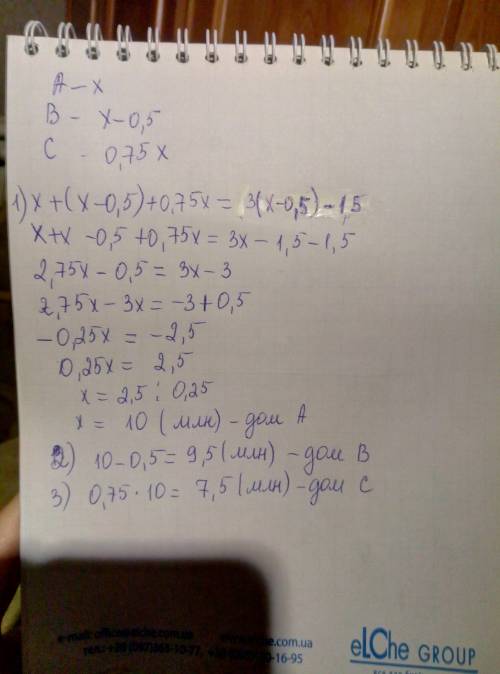 A – x
B – x – 0,5
C – 0,75 x
1) x + (x – 0,5) + 0,75x = 3(x – 0,5) – 1,5
x + x – 0,5 + 0,75x = 3x – 1,5 – 1,5
2,75x – 0,5 = 3x – 3
2,75x – 3x = –3 + 0,5
–0,25x = –2,5
0,25x = 2,5
x = 2,5 : 0,25
x = 10 (млн) – дом A
2) 10 – 0,5 = 9,5 (млн) – дом B
3) 0,75 · 10 = 7,5 (млн) – дом C
e-mail: office@elche.com.ua .elche.com.ua
тел.: +38 (067) 16-95
elChe GROUP